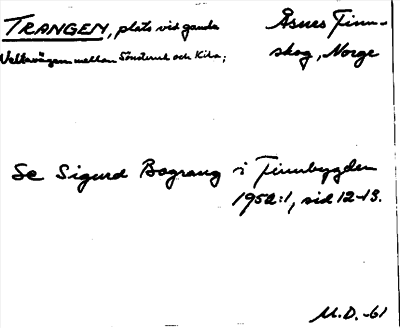 TRANGEN, plats vid gamla
Åsnes Finn-
skog, Norge
vägen mellan och Kila;
Se Sigurd Bograng i Finnbygden
1952:1, sid 12-13.
M.D.-61